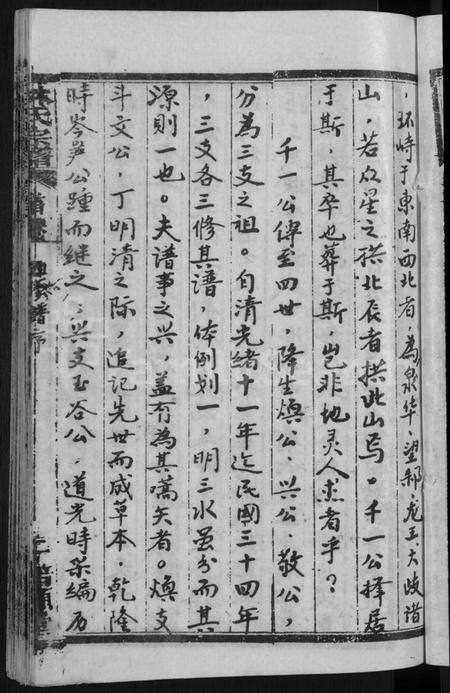 ，环峙于東南西北者，為泉华、望郁、龙王大岐诸
山，若众星之拱北辰者拱此山焉。千一公择居
于斯，其卒也葬于斯，岂非地灵人杰者乎？
千一公傳至四世，降生煥公、兴公、敬公，
分為三支之祖。自清光绪十一年迄民國三十四年
，三支各三修其譜，体例划一，明三水虽分而其
源則一也。夫谱事之兴，盖有為其嚆矢者。煥支
斗文公，丁明清之际，追记先世而成草本。乾隆
時岑笋公踵而継之；兴支玉谷公，道光時采编历
林氏宗譜
譜序